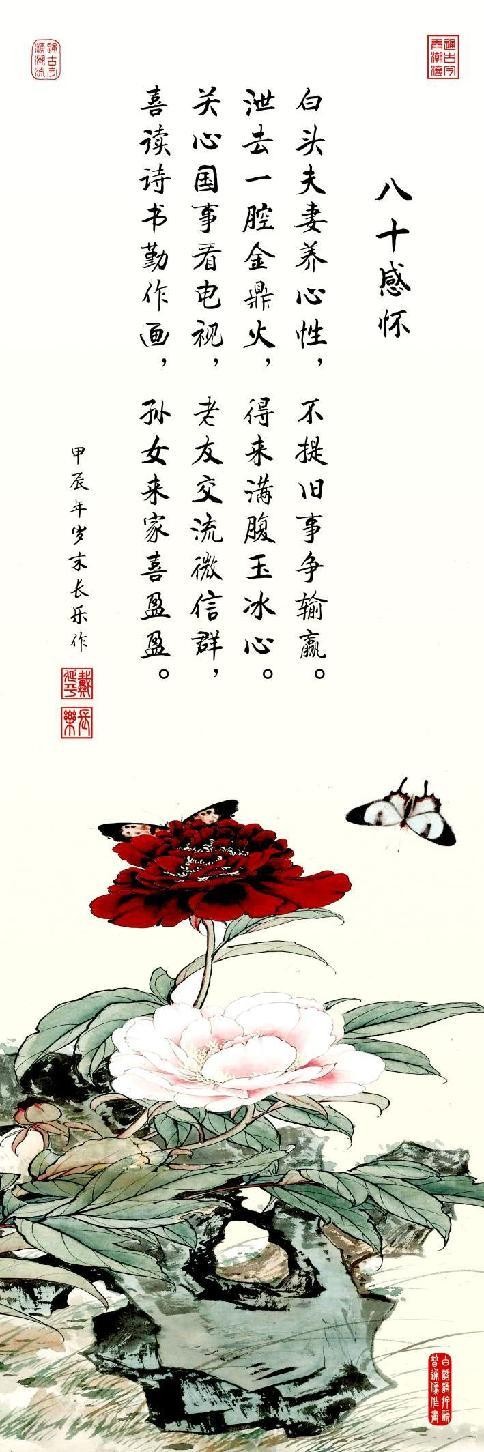 八十感怀
白头夫妻养心性，不提旧事争输赢。
泄去一腔金鼎火，得来满腹玉冰心。
关心国事看电视，老友交流微信群，
喜读诗书勤作画，孙女来家喜盈盈。
甲辰年岁末长乐作
戴延平
长乐